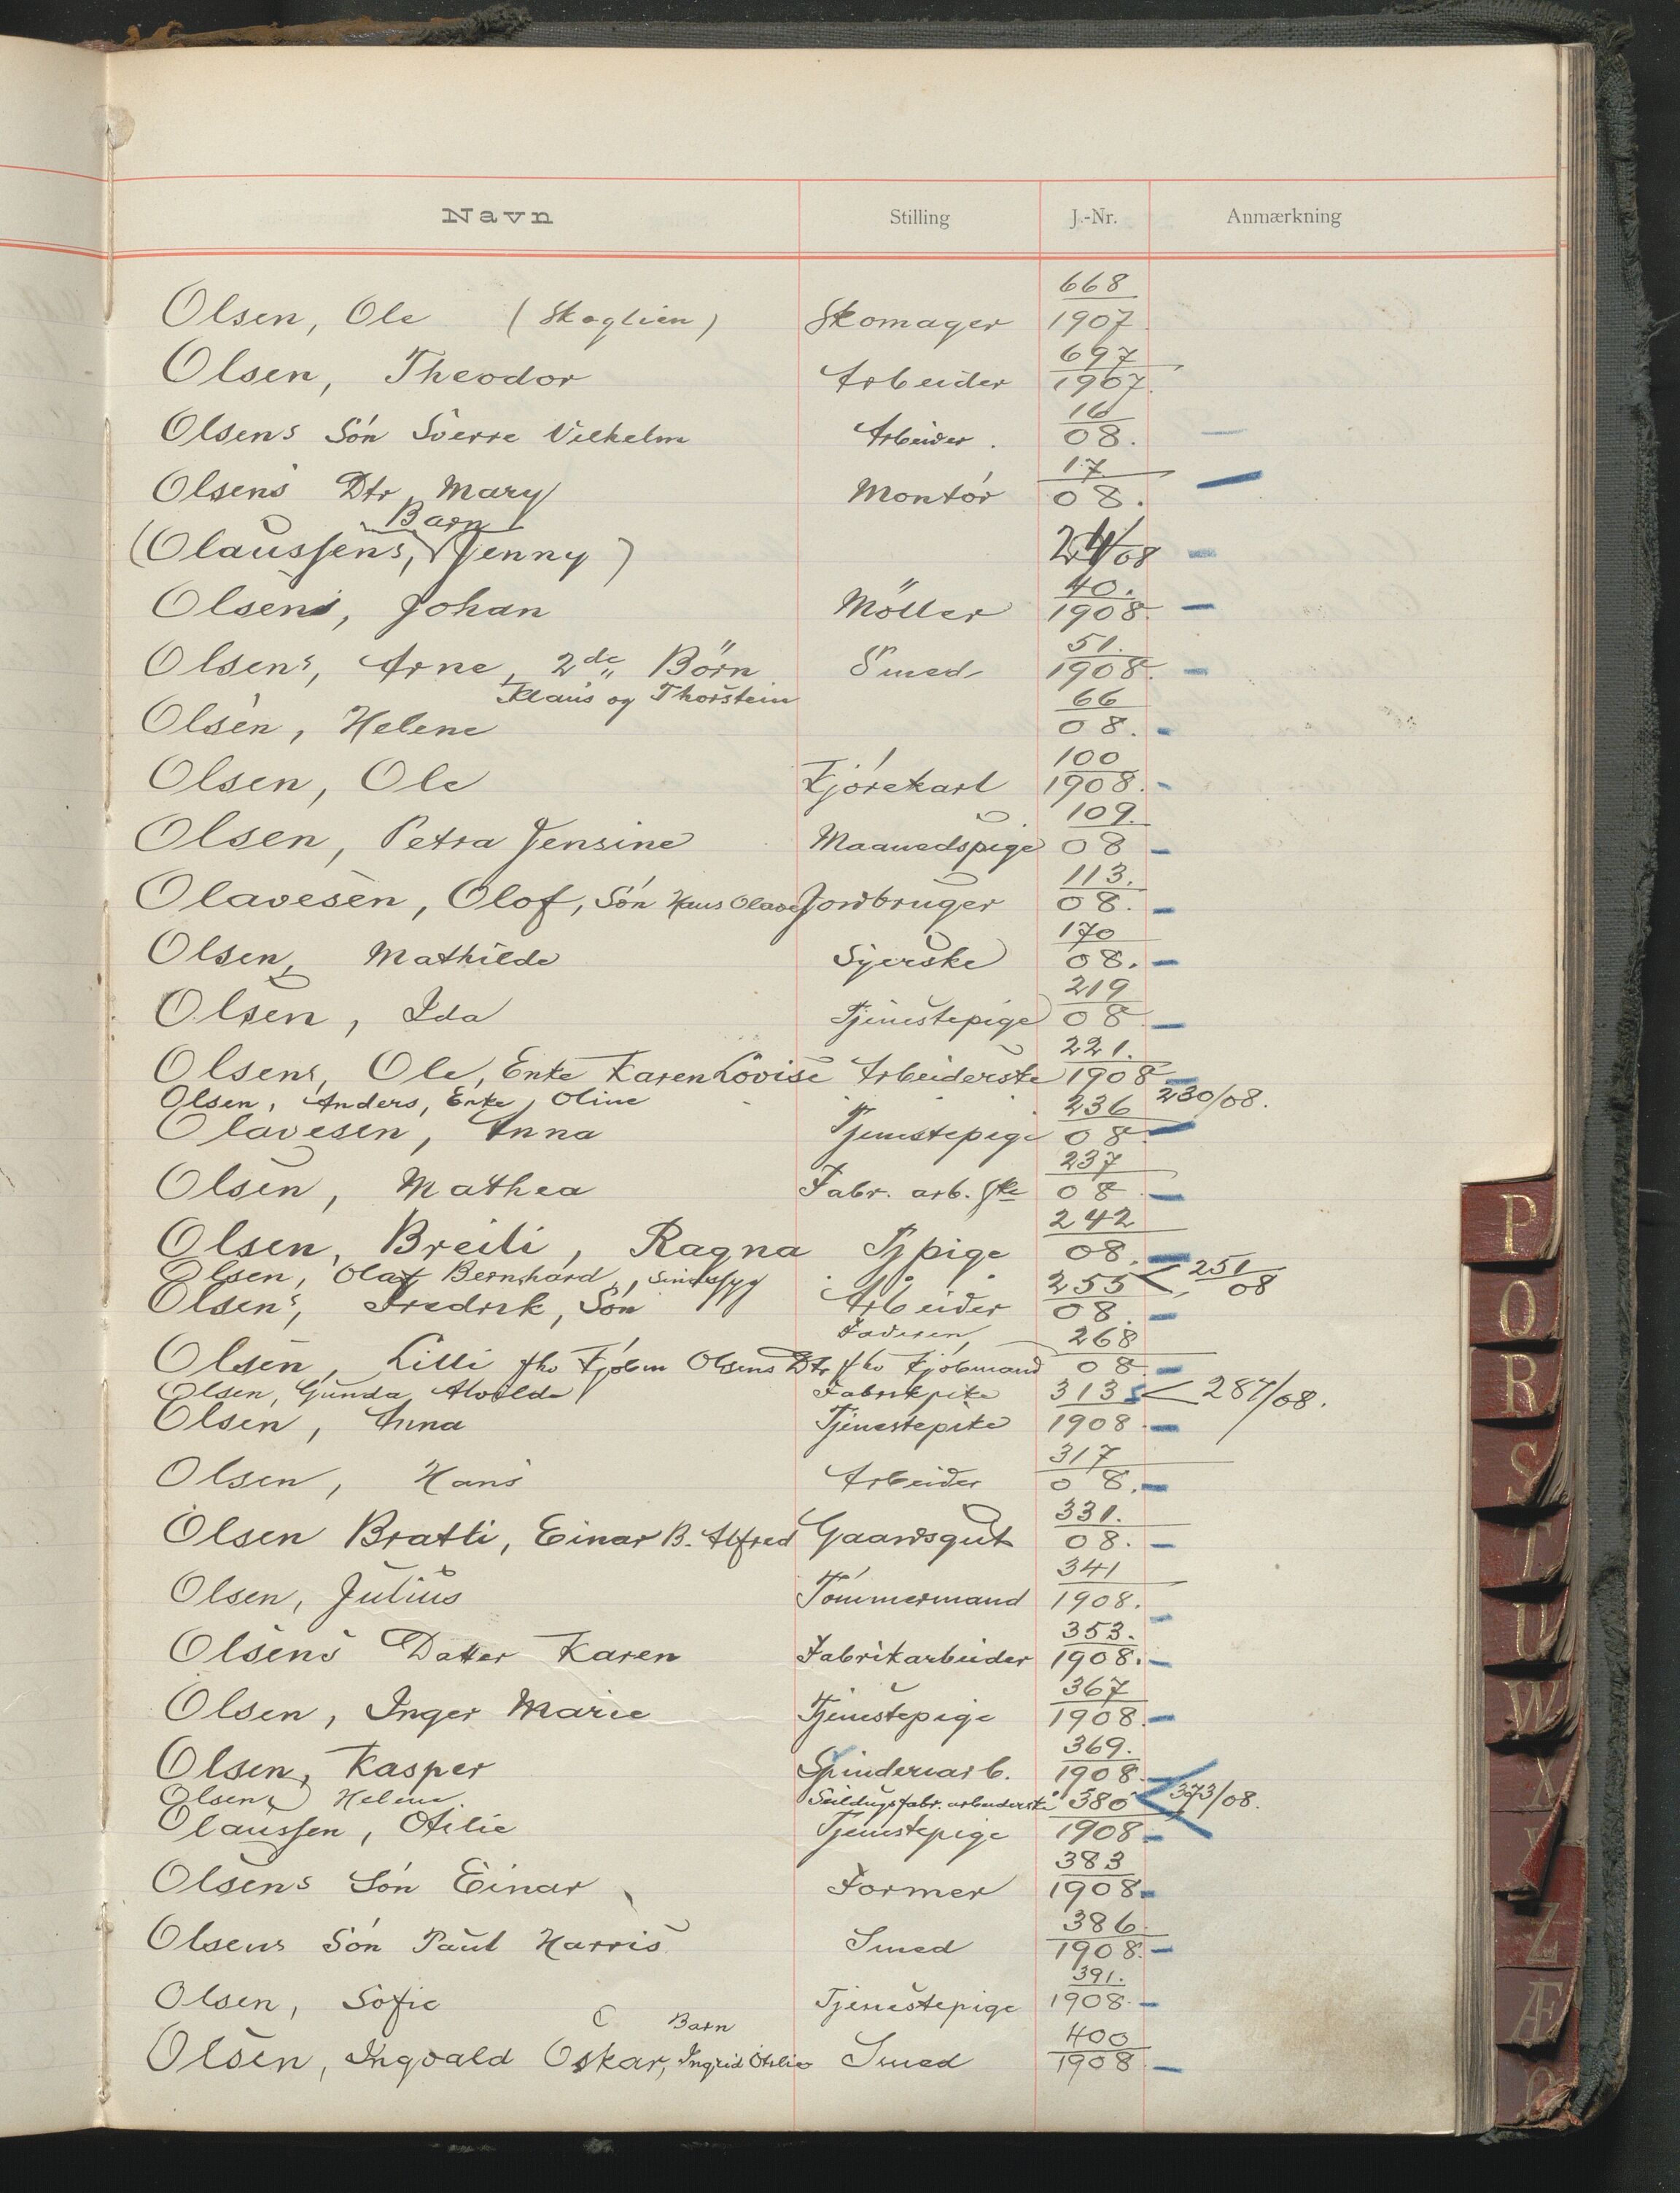 Navn Stilling J.-Nr. Anmærkning
Olsen, Ole (Skoglien) Skomager 668/1907
Olsen, Theodor Arbeider 697/1907.
Olsens Søn Sverre Vilhelm Arbeider. 16/08.
Olsens Dtr. Mary Montør 17/08.
Barn
(Olaussens, Jenny) 24/08
Olsens, Johan Møller 40./1908.
Olsens, Arne, 2de Børn Smed 51./1908.
Klaus og Thorstein
Olsen, Helene 66/08.
Olsen, Ole Kjørekarl 100/1908.
Olsen, Petra Jensine Maanedspige 109./08
Olavesen, Olof, Søn Hans Olav Jordbruger 113./08.
Olsen, Mathilde Syerske 170/08.
Olsen, Ida Tjenestepige 219/08
Olsens, Ole, Enke Karen Lovise Arbeiderske 221./1908
Olsen, Anders, Enke, Oline 230/08.
Olavesen, Anna Tjenestepige 236/08
Olsen, Mathea Fabr. arb.ske 237/08
Olsen, Breili, Ragna Tjpige 242/08.
Olsen, Olaf Bernhard, sindssyg 251/08
Olsens, Fredrik, Søn Arbeider 255/08.
Olsen, Lilli fhv Kjøbm Olsens Dtr fhv Kjøbmand 268/08
Olsen, Gunda Alvilda Fabrikpike 287/08.
Olsen, Anna Tjenestepike 313/1908
Olsen, Hans Arbeider 317/08.
Olsen Bratli, Einar B. Alfred Gaardsgut 331./08.
Olsen, Julius Tømmermand 341/1908.
Olsens Datter Karen Fabrikarbeider 353./1908.
Olsen, Inger Marie Tjenestepige 367/1908.
Olsen, Kasper Spinderiarb. 369./1908.
Olsen, Helene. Seildugsfabr. arbeiderske 373/08.
Olaussen, Otilie Tjenestepige 380/1908
Olsens Søn Einar Former 383/1908.
Olsens Søn Paul Harris Smed 386./1908.
Olsen, Sofie Tjenestepige 391./1908.
Barn
Olsen, Ingvald Oskar, Ingrid Otilie Smed 400/1908
P
O
R
S
T
U
W
X
Y
Z
Æ
Ø